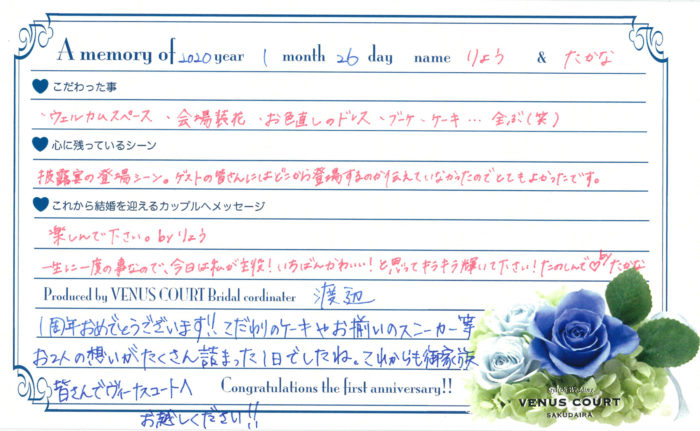 A memory of 2020 year 1 month 26 day name りょう & たかな
こだわった事
・ウェルカムスペース ・会場装花 ・お色直しのドレス ・ブーケ・ケーキ… 全ぶ(笑)
心に残っているシーン
披露宴の登場シーン。ゲストの皆さんにはどこから登場するのか伝えていなかったのでとてもよかったです。
これから結婚を迎えるカップルへメッセージ
楽しんで下さい。by りょう
一生に一度の事なので、今日は私が主役!いちばんかわいい!と思ってキラキラ輝いて下さい!たのしんで♡by たかな
Produced by VENUS COURT Bridal cordinater 渡辺
1周年おめでとうございます!!こだわりのケーキやお揃いのスニーカー等
お2人の想いがたくさん詰まった1日でしたね。これからも御家族
皆さんでヴィーナスコートへ Congratulations the first anniversary!!
お越しください!!
VENUS COURT
SAKUDAIRA